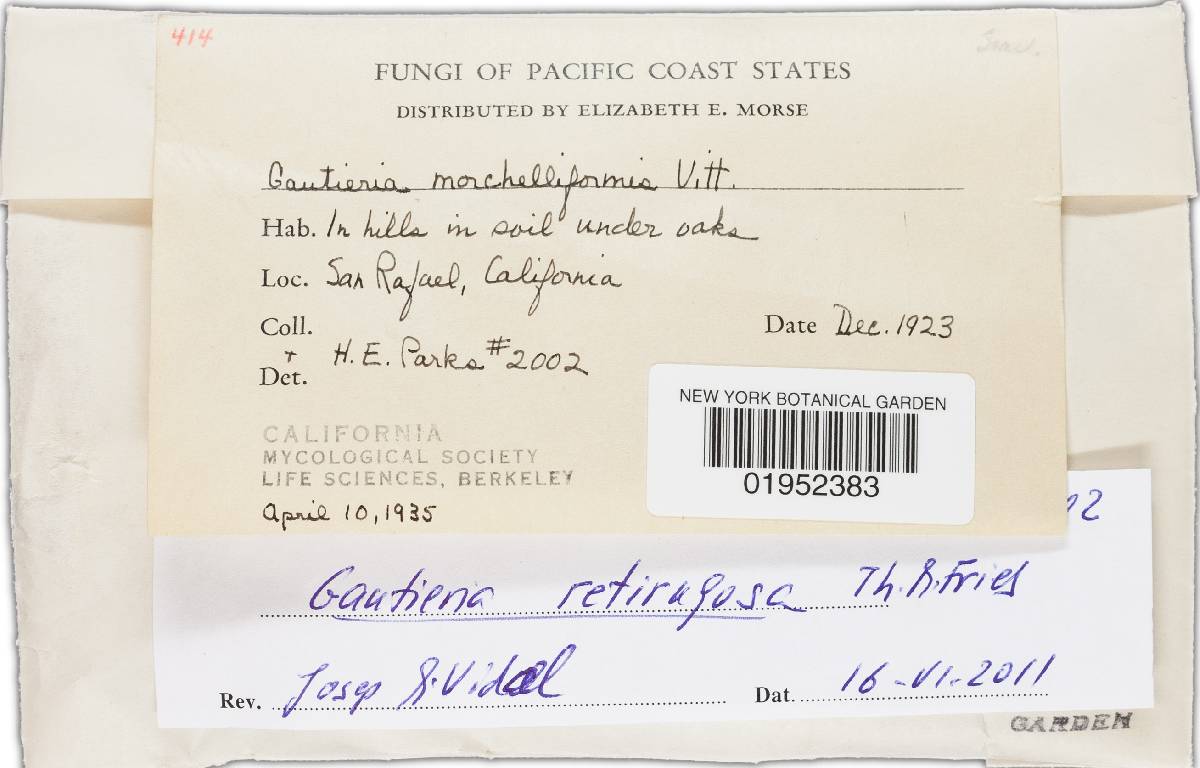 414
FUNGI OF PACIFIC COAST STATES
DISTRIBUTED BY ELIZABETH E. MORSE
Gautieria morchelliformis Vitt.
Hab. In hills in soil under oaks
Loc. San Rafael, California
Coll. + Det. H. E. Parks #2002
Date Dec. 1923
NEW YORK BOTANICAL GARDEN
01952383
CALIFORNIA
MYCOLOGICAL SOCIETY
LIFE SCIENCES, BERKELEY
April 10, 1935
02
Gautieria retirugosa Th. R. Fries
Rev. Josep
Dat. 16-VI-2011
GARDEN